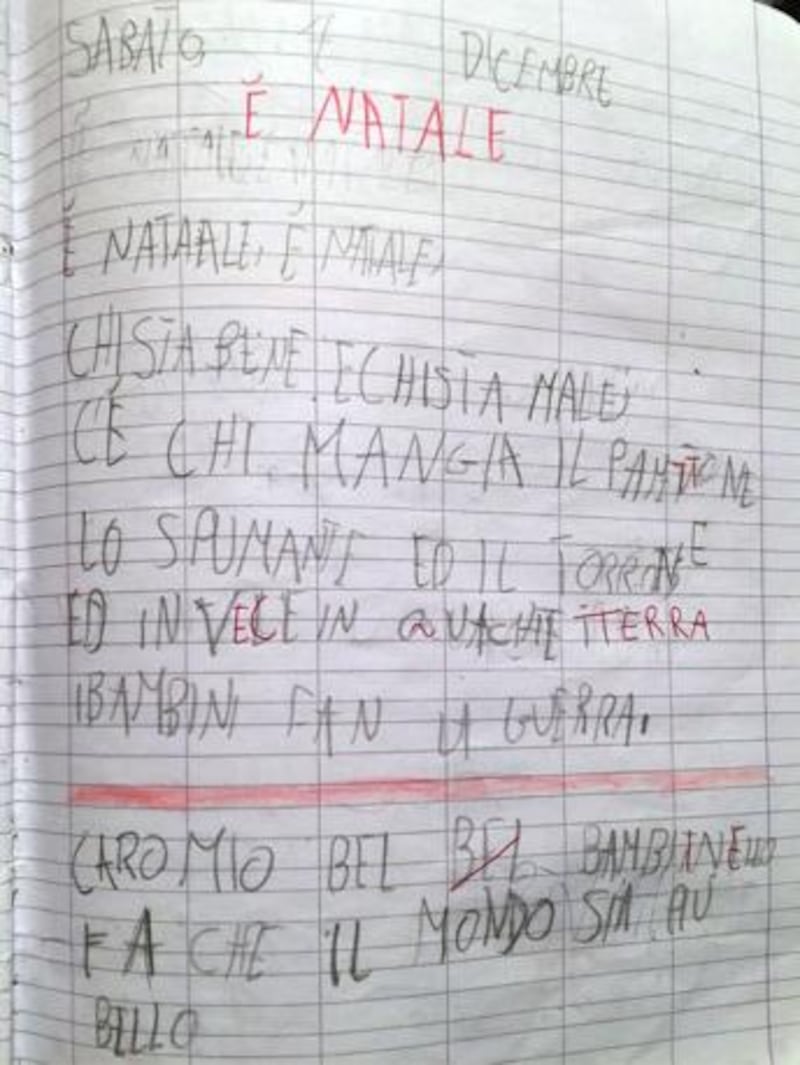 SABATO 1 DICEMBRE
È NATALE
È NATAALE, È NATALE,
CHI STA BENE E CHI STA MALE,
C'È CHI MANGIA IL PANTTONE
LO SPUMANTE ED IL TORRONE
ED INVECE IN QUACHE TTERRA
I BAMBINI FAN LA GUERRA.
CARO MIO BEL BEL BAMBIINELLO
FA CHE IL MONDO SIA
BELLO